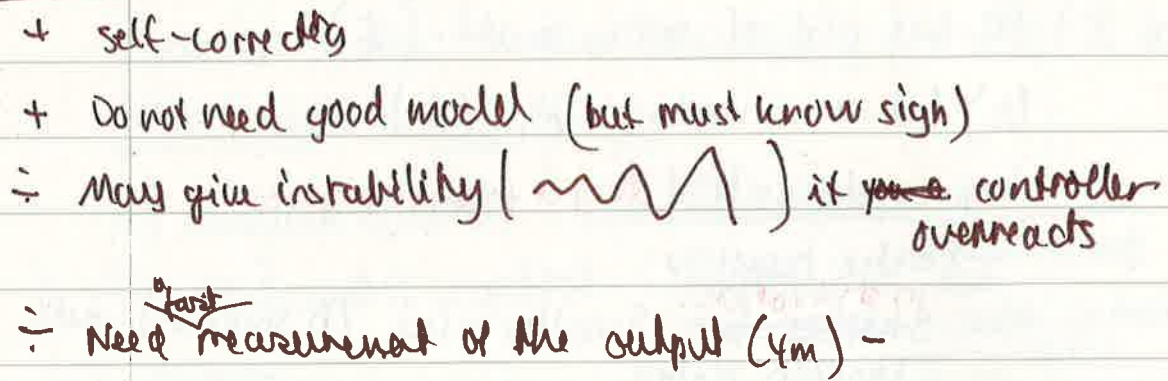 + self-correcting
+ Do not need good model (but must know sign)
÷ May give instability ( ) if controller
overreacts
"fast"
÷ Need measurement of the output (ym) -